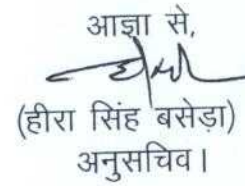 आज्ञा से,
(हीरा सिंह बसेड़ा)
अनुसचिव।